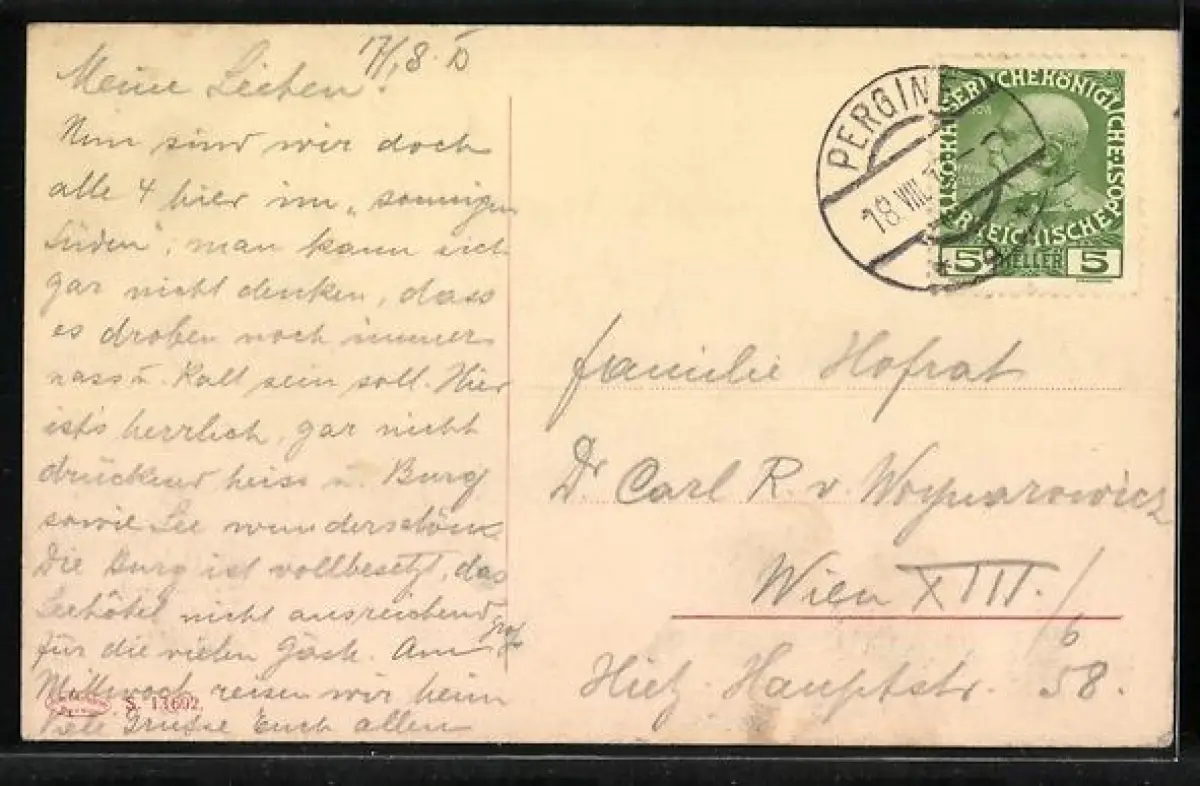 17/8.
Meine Lieben!
Nun sind wir doch
alle 4 hier im „sonnigen
Süden", man kann sich
gar nicht denken, dass
es droben noch immer
nass u. kalt sein soll. Hier
ist's herrlich, gar nicht
drückend heiss u. Burg
sowie See wunderschön.
Die Burg ist vollbesetzt, das
Seehôtel nicht ausreichend
für die vielen Gäste. Am
Mittwoch reisen wir heim
Viele Grüsse Euch allen
S. 13692.
PERGINE
18.VIII.
KAISERLICHE KÖNIGLICHE
ÖSTERREICHISCHE POST
5 HELLER 5
Familie Hofrat
Dr Carl R. v. Woynarowicz
Wien XIII./6
Hietz. Hauptstr. 58.